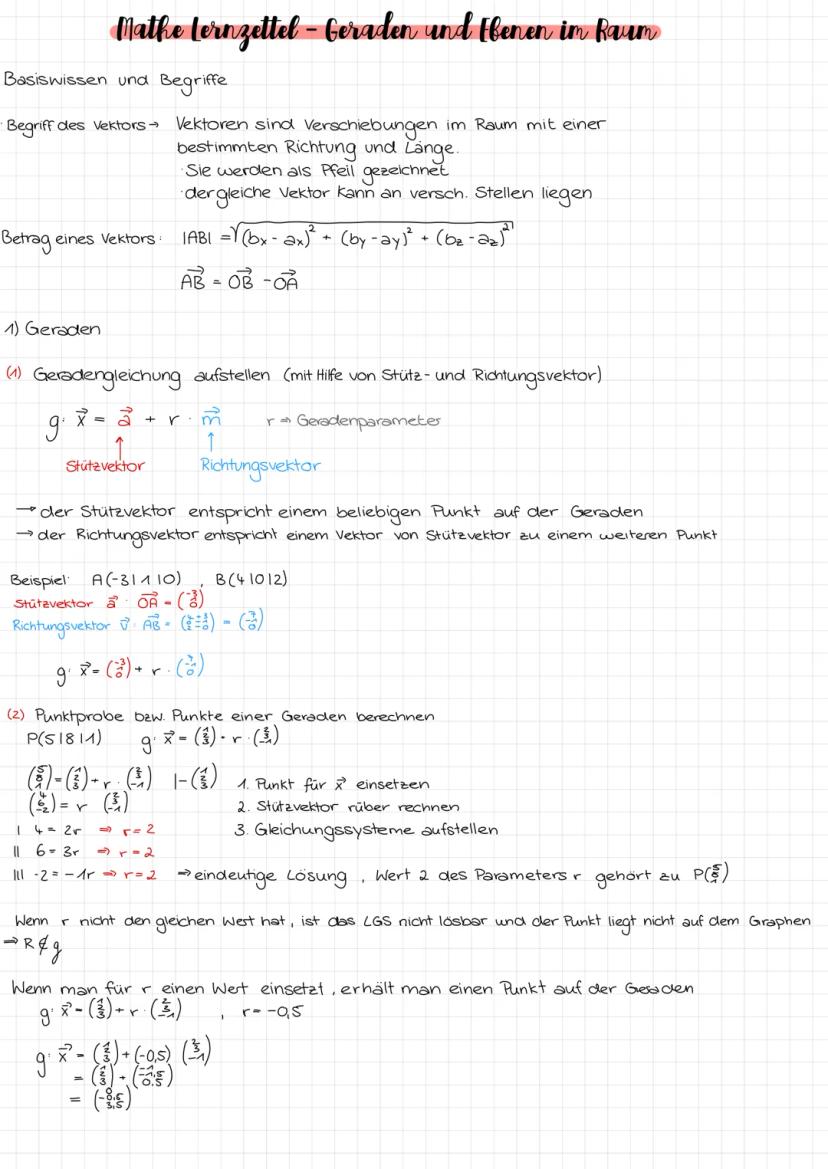 Mathe Lernzettel – Geraden und Ebenen im Raum
Basiswissen und Begriffe
· Begriff des Vektors → Vektoren sind Verschiebungen im Raum mit einer
bestimmten Richtung und Länge.
· Sie werden als Pfeil gezeichnet
· der gleiche Vektor kann an versch. Stellen liegen
Betrag eines Vektors: |AB| = √(bx - ax)² + (by - ay)² + (bz - az)²
AB = OB - OA
1) Geraden
(1) Geradengleichung aufstellen (mit Hilfe von Stütz- und Richtungsvektor)
g: x = a + r · m r ⇒ Geradenparameter
Stützvektor Richtungsvektor
→ der Stützvektor entspricht einem beliebigen Punkt auf der Geraden
→ der Richtungsvektor entspricht einem Vektor von Stützvektor zu einem weiteren Punkt
Beispiel: A(-3|1|0) , B(4|0|2)
Stützvektor a : OA = (-3 1 0)
Richtungsvektor v : AB =
g: x = (-3 1 0) + r ·
(2) Punktprobe bzw. Punkte einer Geraden berechnen
P(5|8|1) g: x = (1 2 3) + r · (2 3 -1)
(5 8 1) = (1 2 3) + r · (2 3 -1) |-(1 2 3) 1. Punkt für x einsetzen
(4 6 -2) = r (2 3 -1) 2. Stützvektor rüber rechnen
I 4 = 2r ⇒ r = 2 3. Gleichungssysteme aufstellen
II 6 = 3r ⇒ r = 2
III -2 = -1r ⇒ r = 2 ⇒ eindeutige Lösung , Wert 2 des Parameters r gehört zu P
Wenn r nicht den gleichen West hat, ist das LGS nicht lösbar und der Punkt liegt nicht auf dem Graphen
⇒ R ∉ g
Wenn man für r einen Wert einsetzt, erhält man einen Punkt auf der Geraden
g: x = (1 2 3) + r · (2 3 -1) , r = -0,5
g: x = (1 2 3) + (-0,5) (2 3 -1)
= (1 2 3) + (-1 -1,5 0,5)
= (0 0,5 3,5)